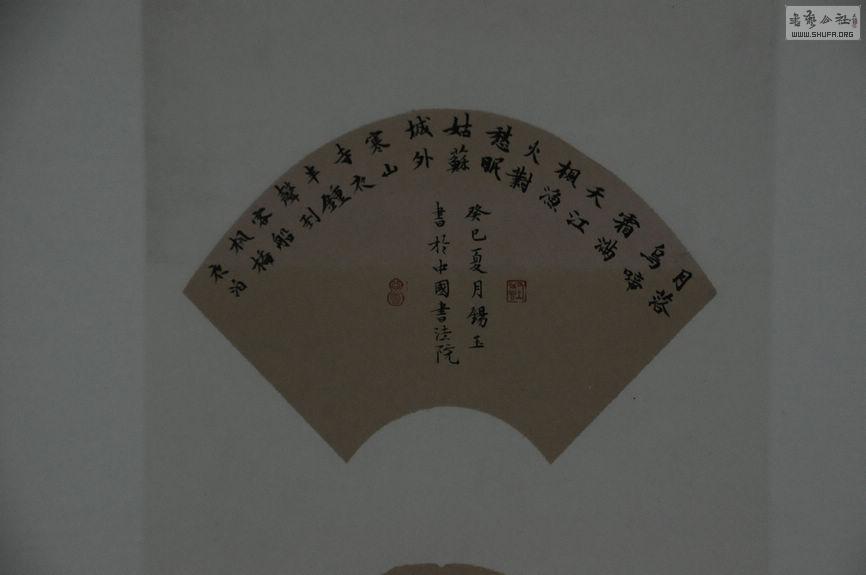 月落
烏啼
霜滿
天江
枫漁
火對
愁眠
姑蘇
城外
寒山
寺夜
半鍾
聲到
客船
枫橋
夜泊
癸巳夏月錫玉
書於中國書法院
書藝公社
WWW.SHUFA.ORG